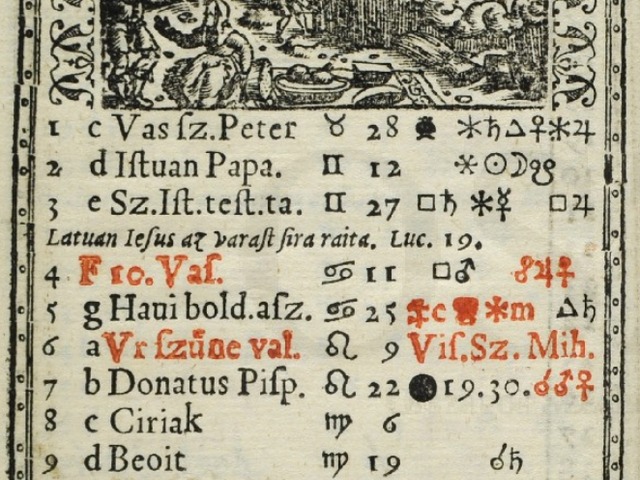 1 c Vas ſz. Peter ♉ 28 ⚹♄△♀⚹♃
2 d Iſtuan Papa. ♊ 12 ⚹☉☽☋
3 e Sz. Iſt. teſt. ta. ♊ 27 □♄ ⚹☿ □♃
Latuan Ieſus az varaſt ſira raita. Luc. 19.
4 F 10. Vaſ. ♋ 11 □♂ ☍♃♀
5 g Haui bold. aſz. ♋ 25 c ⚹m △♄
6 a Vr ſzűne val. ♌ 9 Viſ. Sz. Mih.
7 b Donatus Piſp. ♌ 22 ● 19. 30. ☌♂♀
8 c Ciriak ♍ 6
9 d Beoit ♍ 19 ☌♄